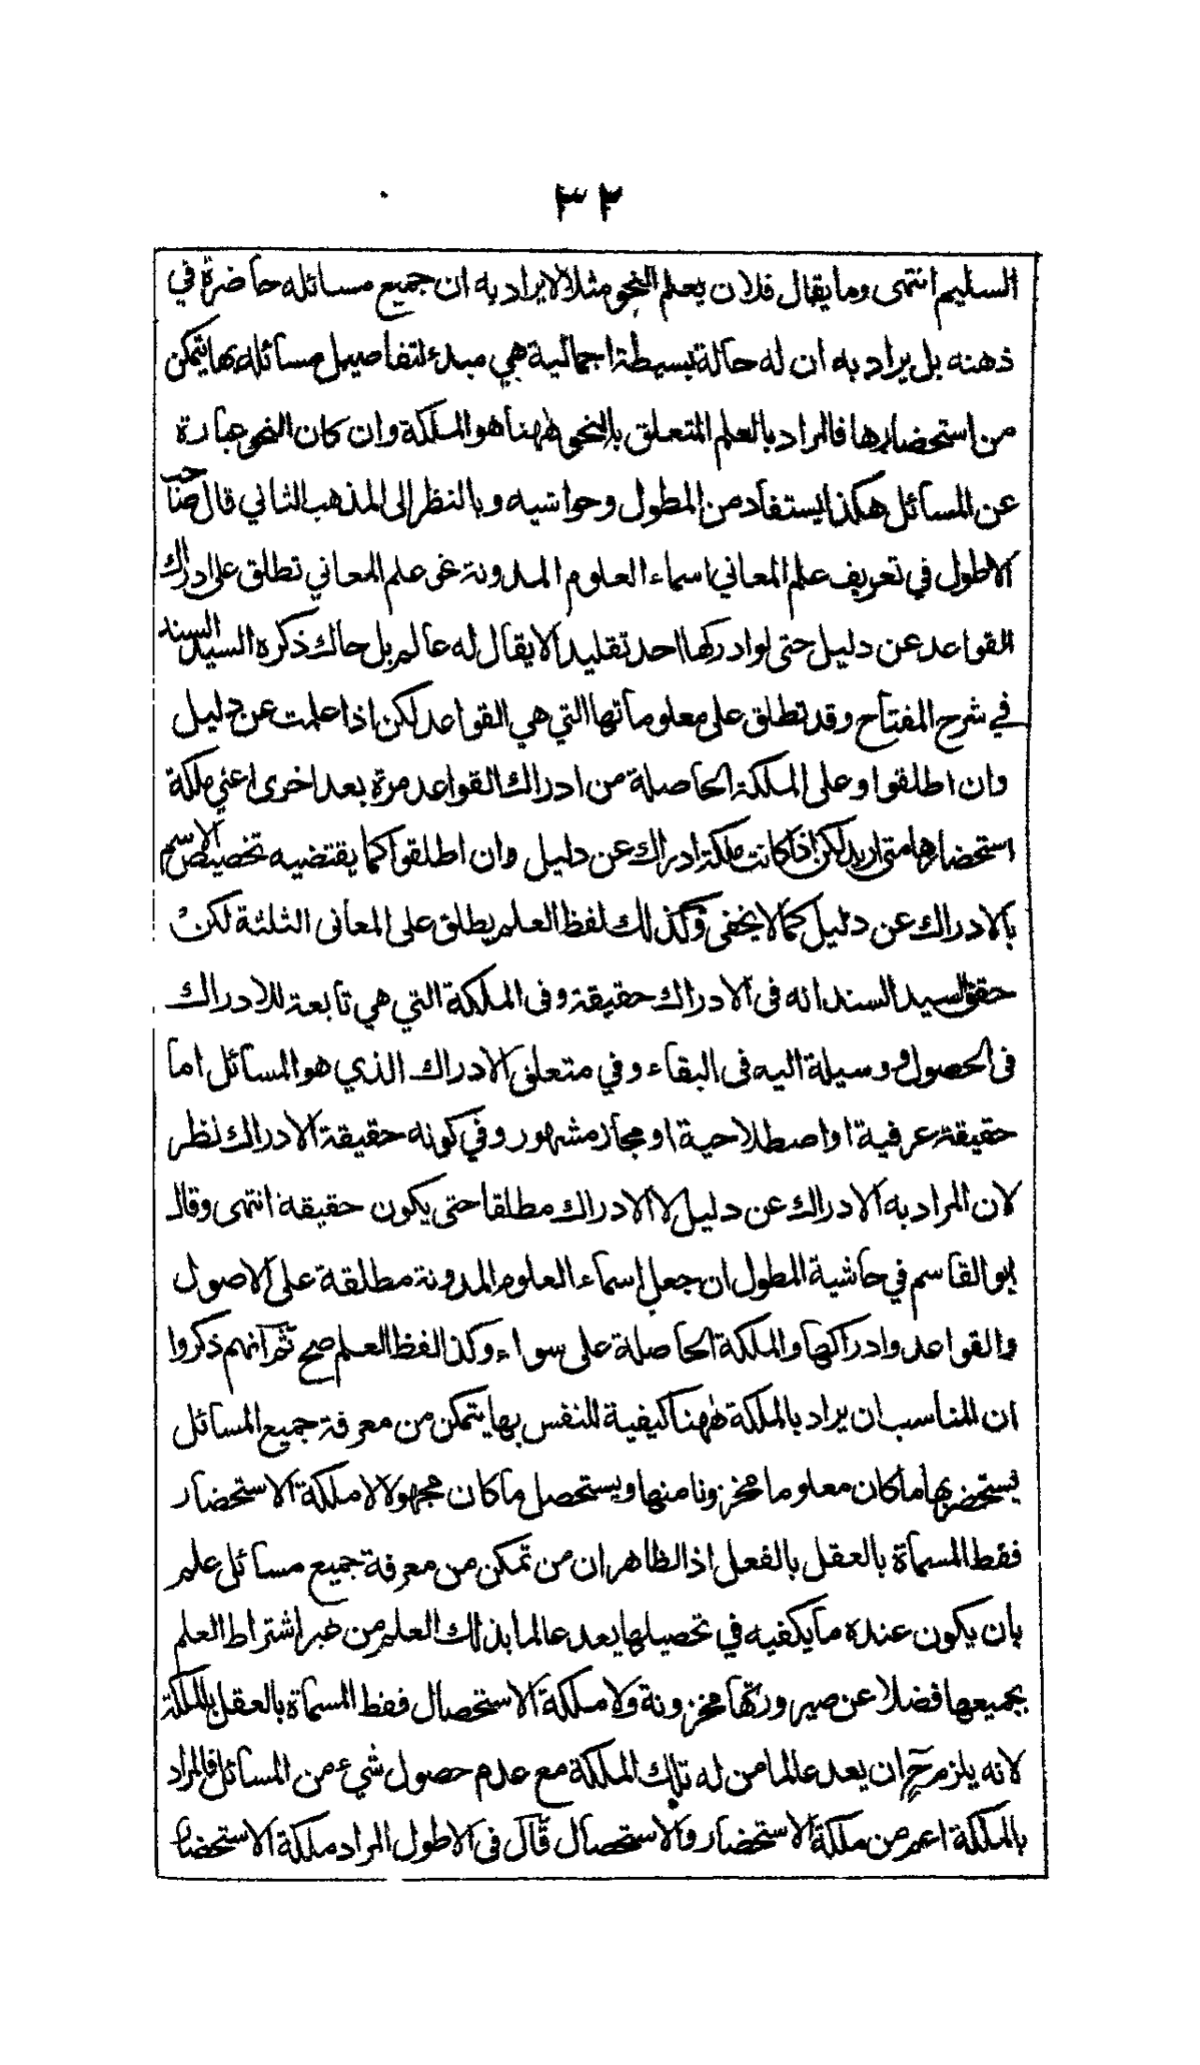 ٣٢
السليم انتهى وما يقال فلان يعلم النحو مثلا لا يراد به ان جميع مسائله حاضرة في
ذهنه بل يراد به ان له حالة بسيطة اجمالية هي مبدء لتفاصيل مسائله بها يتمكن
من استحضارها فالمراد بالعلم المتعلق بالنحو ههنا هو الملكة وان كان النحو عبارة
عن المسائل هكذا يستفاد من المطول وحواشيه وبالنظر الى المذهب الثاني قال صاحب
الاطول في تعريف علم المعاني اسماء العلوم المدونة نحو علم المعاني تطلق على ادراك
القواعد عن دليل حتى لو ادركها احد تقليدا لا يقال له عالم بل حاك ذكره السيد السند
في شرح المفتاح وقد تطلق على معلوماتها التي هي القواعد لكن اذا علمت عن دليل
وان اطلقوا وعلى الملكة الحاصلة من ادراك القواعد مرة بعد اخرى اعني ملكة
استحضارها متى اريد لكن اذا كانت ملكة ادراك عن دليل وان اطلقوا كما يقتضيه تخصيص الاسم
بالادراك عن دليل كما لا يخفى وكذلك لفظ العلم يطلق على المعاني الثلثة لكن
حقق السيد السند انه في الادراك حقيقة وفى الملكة التي هي تابعة للادراك
في الحصول ووسيلة اليه في البقاء وفي متعلق الادراك الذي هو المسائل اما
حقيقة عرفية او اصطلاحية او مجاز مشهور وفي كونه حقيقة الادراك نظر
لان المراد به الادراك عن دليل لا الادراك مطلقا حتى يكون حقيقة انتهى وقال
ابو القاسم في حاشية المطول ان جعل اسماء العلوم المدونة مطلقة على الاصول
والقواعد وادراكها والملكة الحاصلة على سواء وكذا لفظ العلم صح ثم انهم ذكروا
ان المناسب ان يراد بالملكة ههنا كيفية للنفس بها يتمكن من معرفة جميع المسائل
يستحضر بها ما كان معلوما مخزونا منها ويستحصل ما كان مجهولا لا ملكة الاستحضار
فقط المسماة بالعقل بالفعل اذ الظاهر ان من تمكن من معرفة جميع مسائل علم
بان يكون عنده ما يكفيه في تحصيلها يعد عالما بذلك العلم من غير اشتراط العلم
بجميعها فضلا عن صيرورتها مخزونة ولا ملكة الاستحصال فقط المسماة بالعقل بالملكة
لانه يلزم ح ان يعد عالما من له تلك الملكة مع عدم حصول شيء من المسائل فالمراد
بالملكة اعم من ملكة الاستحضار والاستحصال قال فى الاطول المراد ملكة الاستحضار